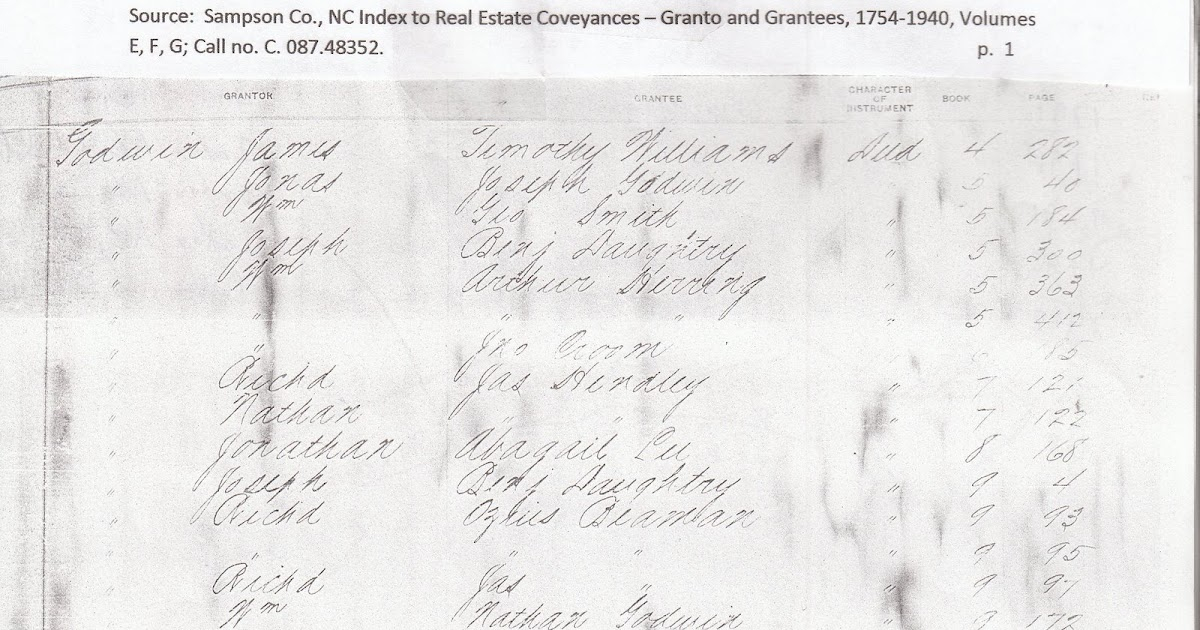 Source: Sampson Co., NC Index to Real Estate Coveyances – Granto and Grantees, 1754-1940, Volumes
E, F, G; Call no. C. 087.48352. p. 1
GRANTOR GRANTEE CHARACTER OF INSTRUMENT BOOK PAGE
Godwin James Timothy Williams Deed 4 282
" Jonas Joseph Godwin " 5 40
" Wm Geo Smith " 5 184
" Joseph Benj Daughtry " 5 300
" Wm Arthur Herring " 5 363
" " " " " 5 412
" " Jno Croom 85
" Richd Jas Hendley " 7 121
" Nathan " " " 7 122
" Jonathan Abagail Lee " 8 168
" Joseph Benj Daughtry " 9 4
" Richd Ozias Beaman " 9 93
" " " " " 9 95
" Richd Jas " " 9 97
" Wm Nathan Godwin " 9 172